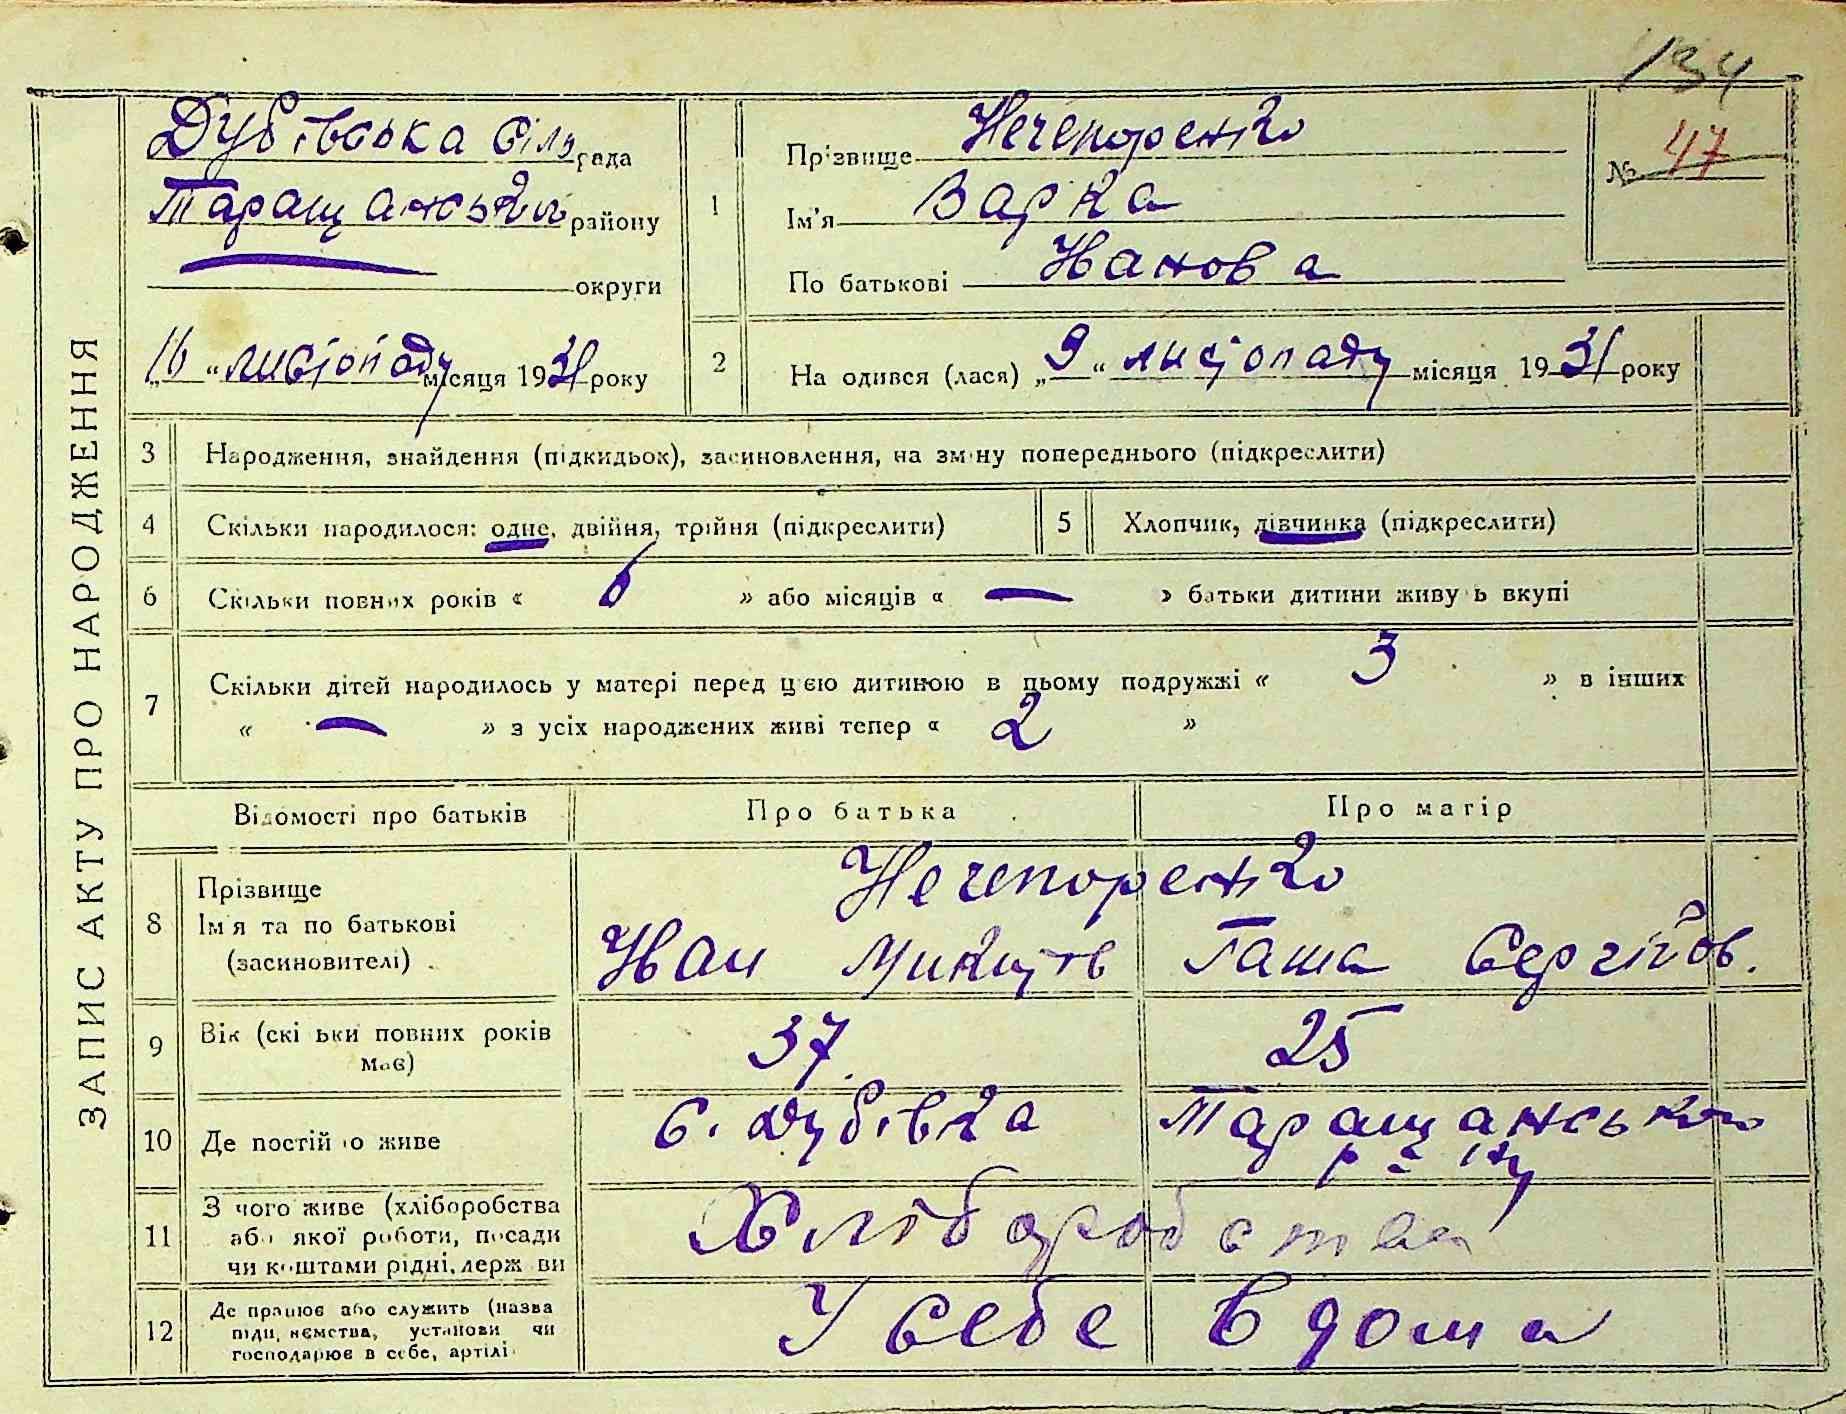 134
ЗАПИС АКТУ ПРО НАРОДЖЕННЯ
Дубівська сіль рада
Таращанськ району
округи
„16“ листопаду місяця 1931 року
1
Прізвище Нечепоренко
Ім'я Варка
По батькові Иванова
№ 47
2 На одився (лася) „9“ листопаду місяця 1931 року
3 Народження, знайдення (підкидьок), засиновлення, на зміну попереднього (підкреслити)
4 Скільки народилося: одне, двійня, трійня (підкреслити) 5 Хлопчик, дівчинка (підкреслити)
6 Скільки повних років « 6 » або місяців « — » батьки дитини живу ь вкупі
7 Скільки дітей народилось у матері перед цією дитиною в цьому подружжі « 3 » в інших
« — » з усіх народжених живі тепер « 2 »
Відомості про батьків Про батька Про матір
8 Прізвище
Ім я та по батькові
(засиновителі)
Нечепоренко
Иван Микитів Гаша Сергійов.
9 Вік (скі ьки повних років має) 37 25
10 Де постій о живе с. Дубівка Таращанського
р-ну
11 З чого живе (хліборобства
або якої роботи, посади
чи коштами рідні, держ ви
Хліборобства
12 Де працює або служить (назва
підп. ємства, установи чи
господарює в себе, артілі
У себе в дома